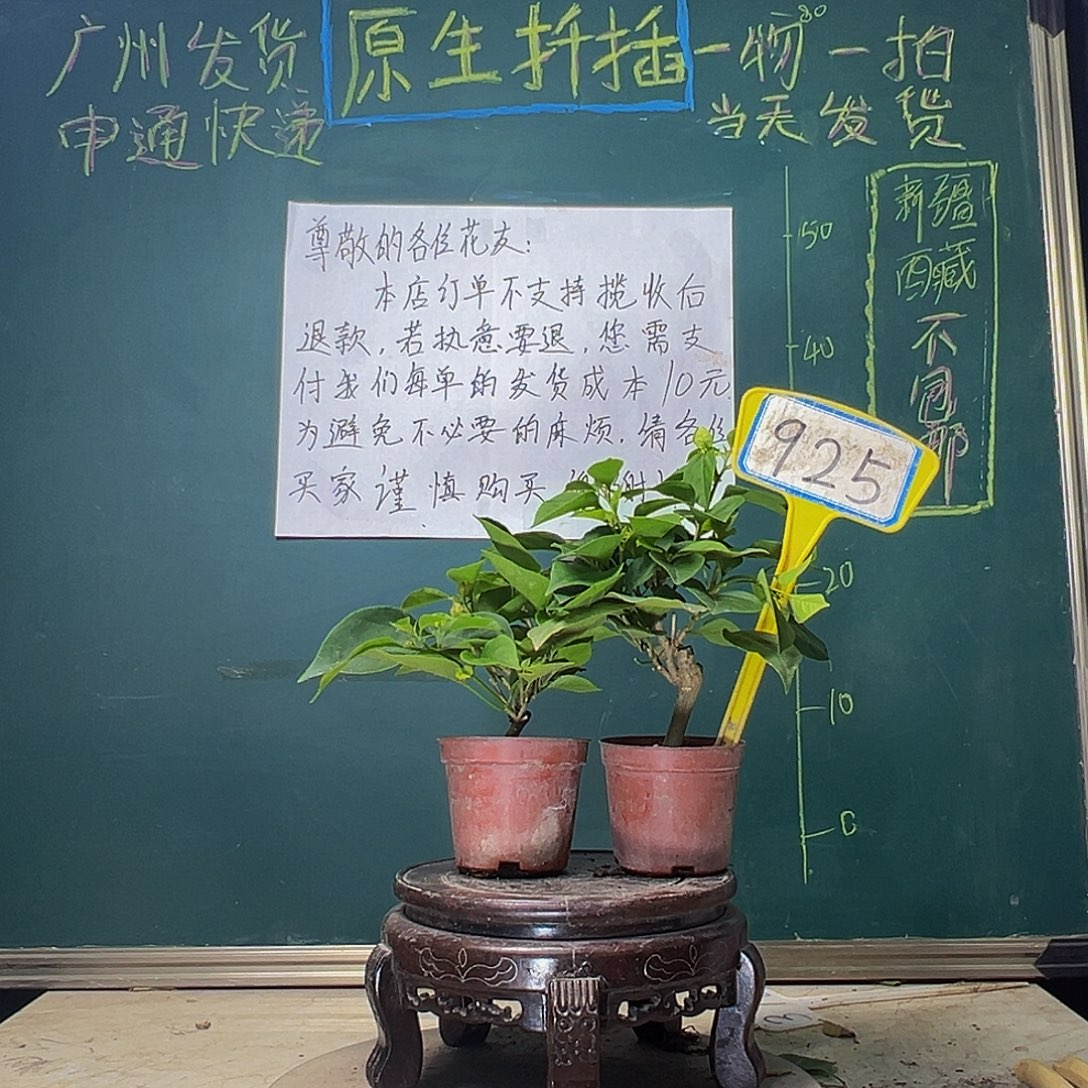 广州发货
原生扦插
一物一拍
申通快递
当天发货
尊敬的各位花友：
本店订单不支持揽收后
退款，若执意要退，您需支
付我们每单的发货成本10元
为避免不必要的麻烦，请各位
买家谨慎购买
925
新疆
西藏
不包邮
50
40
20
10
0